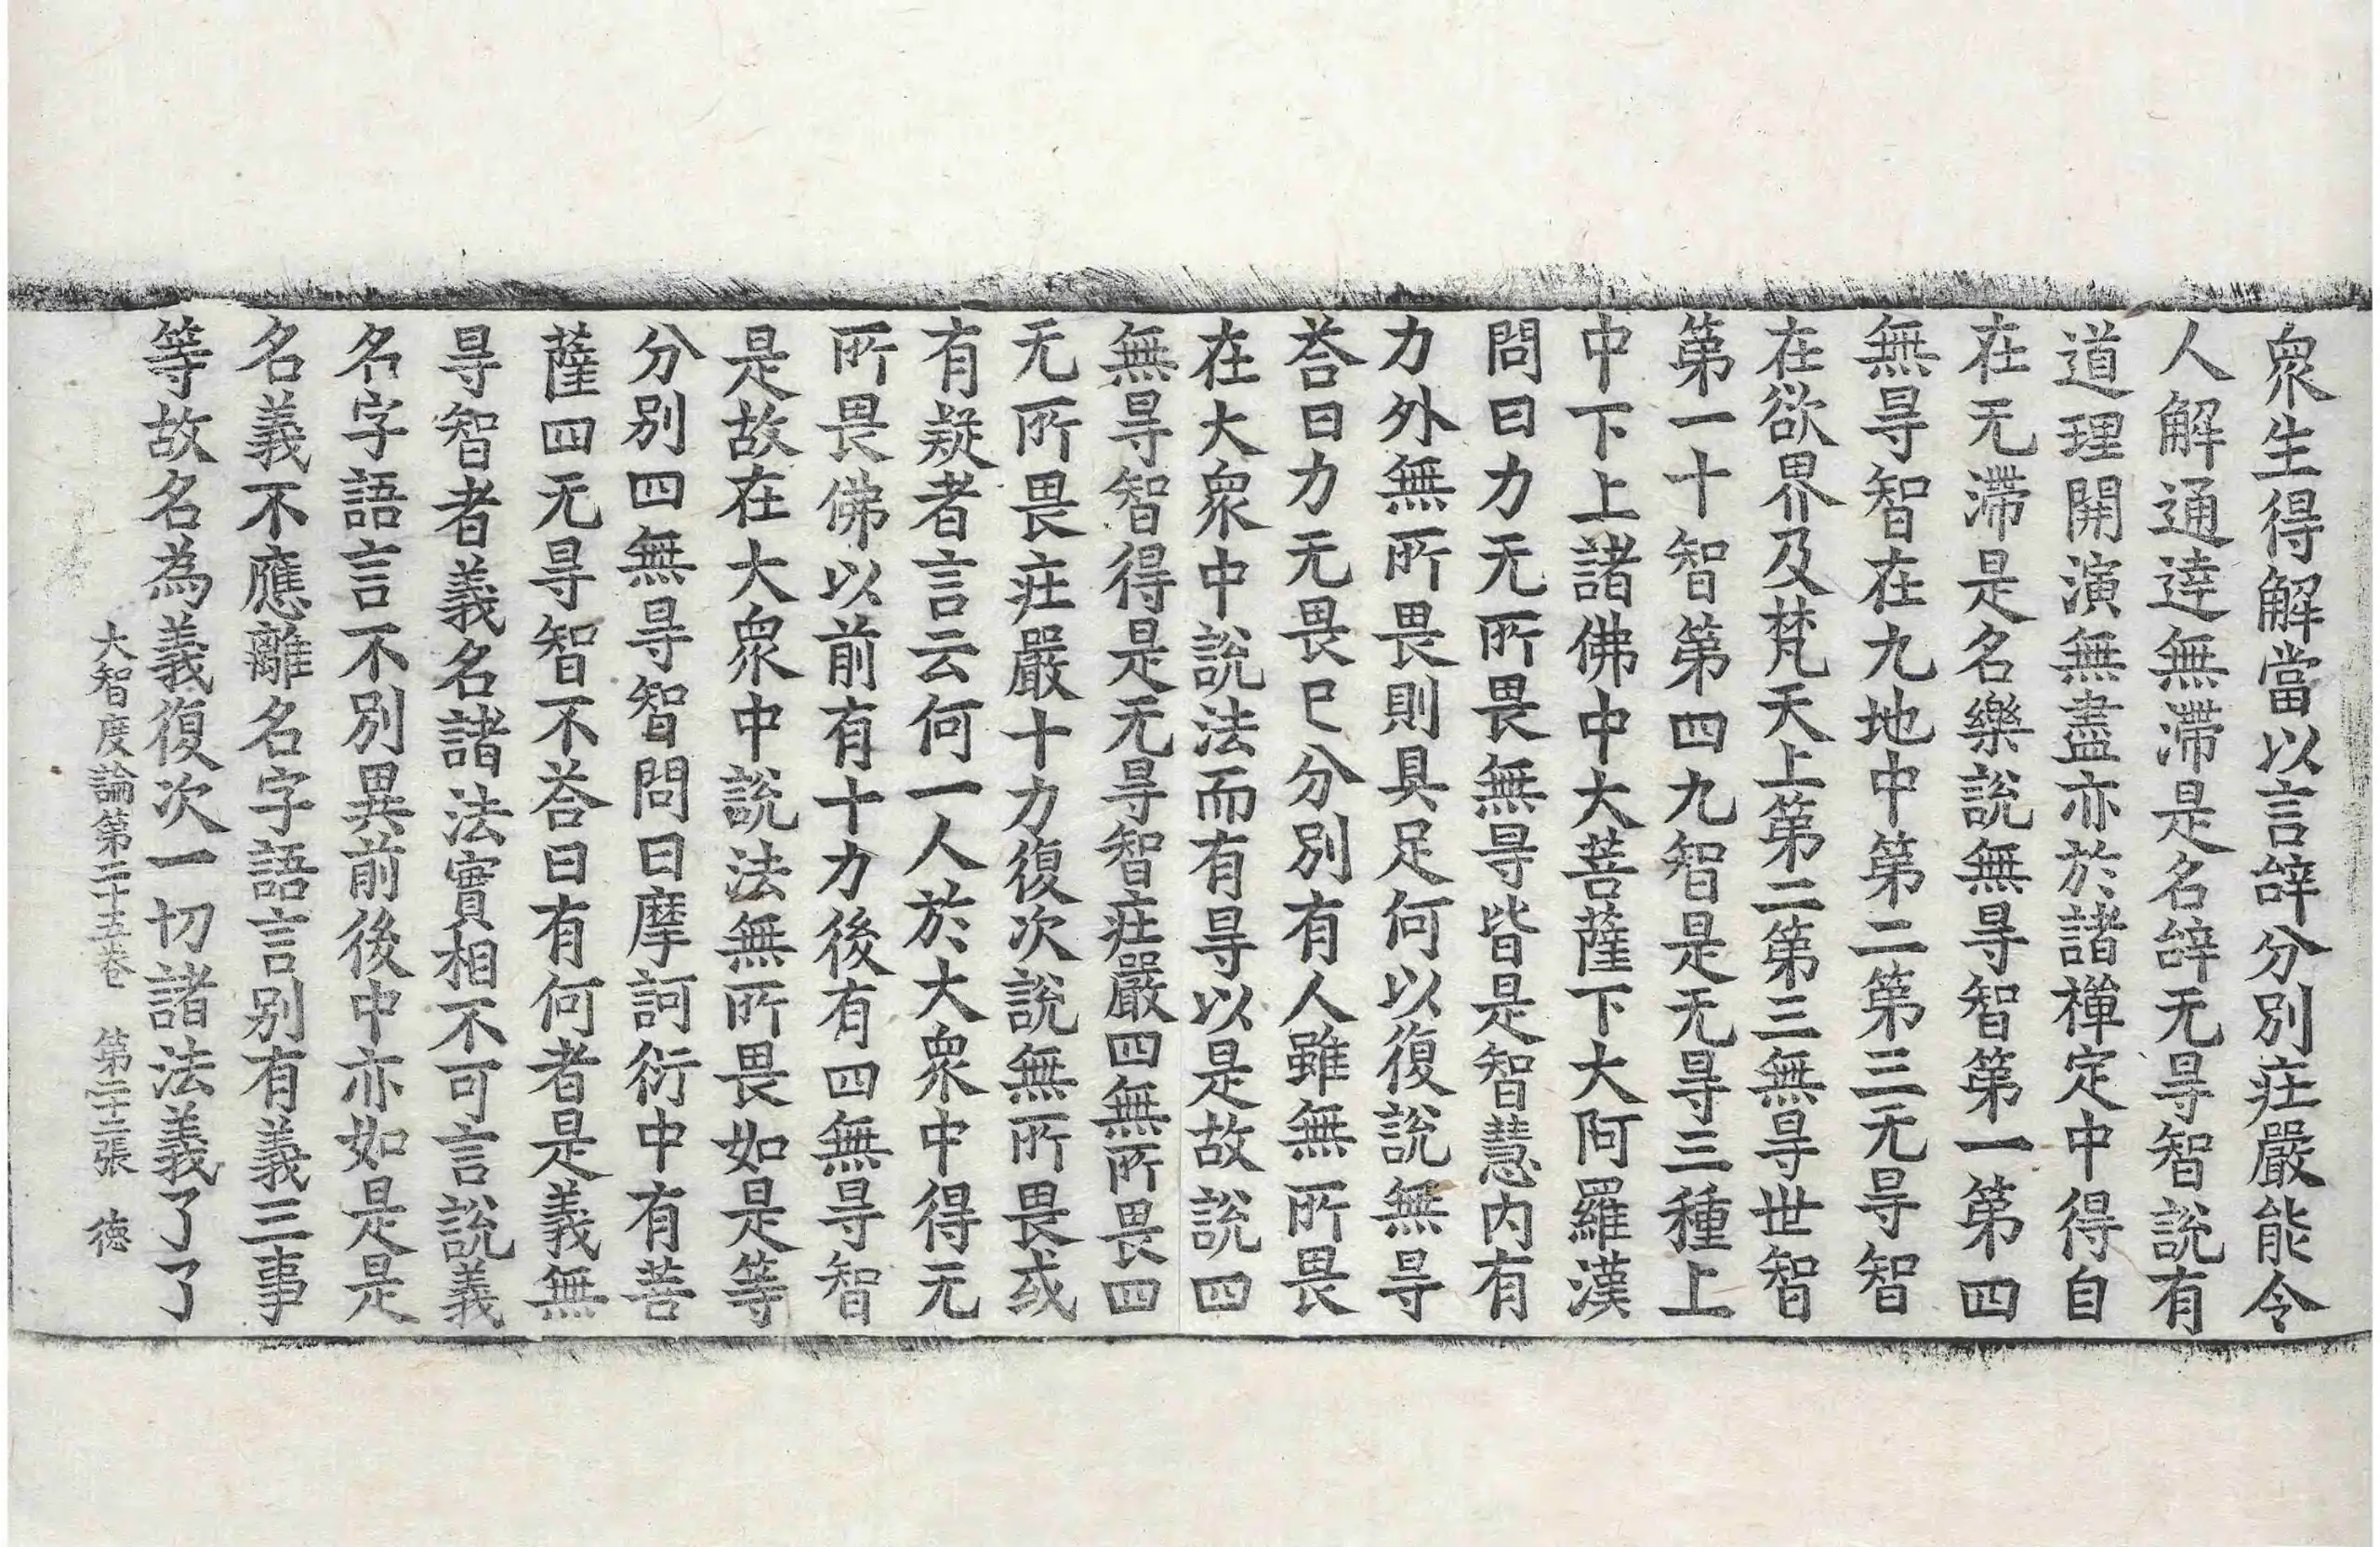 衆生得解當以言辝分別疘嚴能令
人解通達無滯是名辝无㝵智說有
道理開演無盡亦於諸禪定中得自
在无滯是名樂說無㝵智第一第四
無㝵智在九地中第二第三无㝵智
在欲界及梵天上第二第三無㝵世智
第一十智第四九智是无㝵三種上
中下上諸佛中大菩薩下大阿羅漢
問曰力无所畏無㝵皆是智慧內有
力外無所畏則具足何以復說無㝵
荅曰力无畏巳分別有人雖無所畏
在大衆中說法而有㝵以是故說四
無㝵智得是无㝵智疘嚴四無所畏四
无所畏疘嚴十力復次說無所畏或
有疑者言云何一人於大衆中得无
所畏佛以前有十力後有四無㝵智
是故在大衆中說法無所畏如是等
分別四無㝵智問曰摩訶衍中有菩
薩四无㝵智不荅曰有何者是義無
㝵智者義名諸法實相不可言說義
名字語言不別異前後中亦如是是
名義不應離名字語言別有義三事
等故名為義復次一切諸法義了了
大智度論第二十五卷　第二十二張　徳